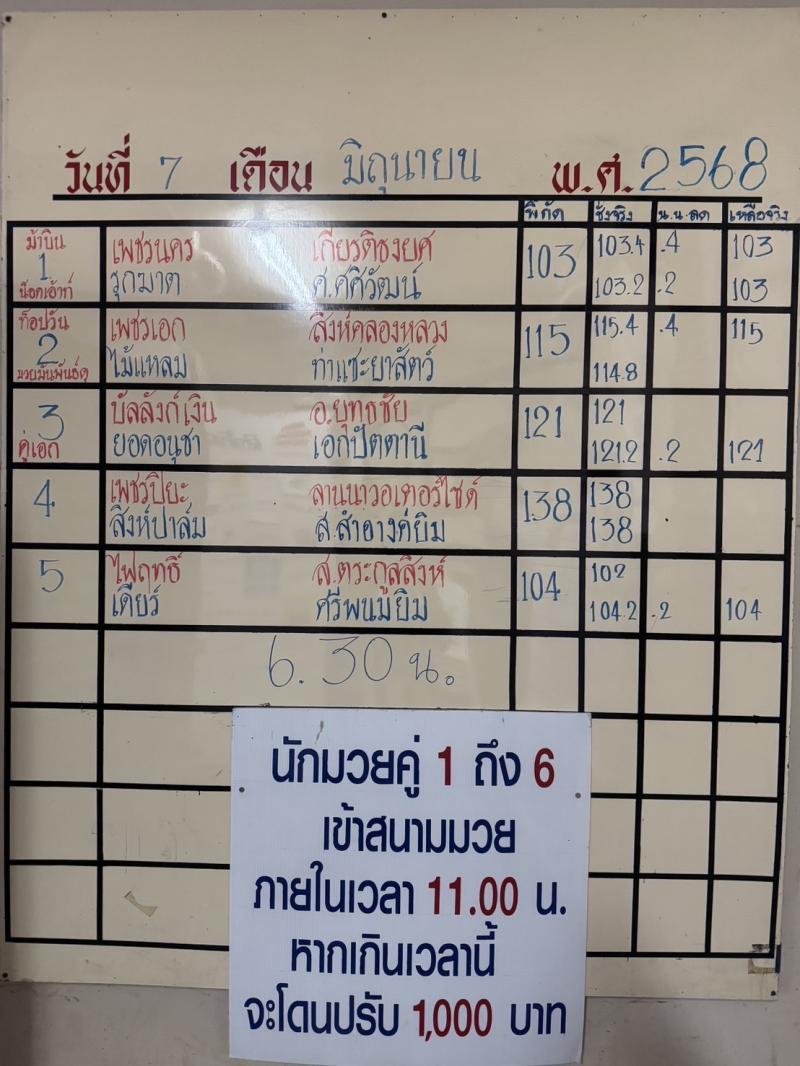 วันที่ 7 เดือน มิถุนายน พ.ศ. 2568
พิกัด ชั่งจริง น.น.ลด เหลือจริง
ม้าบิน
1
น็อคเอ้าท์
เพชรนคร เกียรติธงยศ 103 103.4 .4 103
รุกฆาต ศ.ศศิวัฒน์ 103.2 .2 103
ท็อปวัน
2
มวยมันพันธ์ดุ
เพชรเอก สิงห์คลองหลวง 115 115.4 .4 115
ไม้แหลม ท่าแซะยาสัตว์ 114.8
3
คู่เอก
บัลลังก์เงิน อ.ยุทธชัย 121 121
ยอดอนุชา เอกปัตตานี 121.2 .2 121
4
เพชรปิยะ ลานนาวอเตอร์ไซด์ 138 138
สิงห์ปาล์ม ส.สำอางค์ยิม 138
5
ไฟฤทธิ์ ส.ตระกูลสิงห์ 104 102
เดียร์ ศรีพนมยิม 104.2 .2 104
6.30 น.
นักมวยคู่ 1 ถึง 6
เข้าสนามมวย
ภายในเวลา 11.00 น.
หากเกินเวลานี้
จะโดนปรับ 1,000 บาท